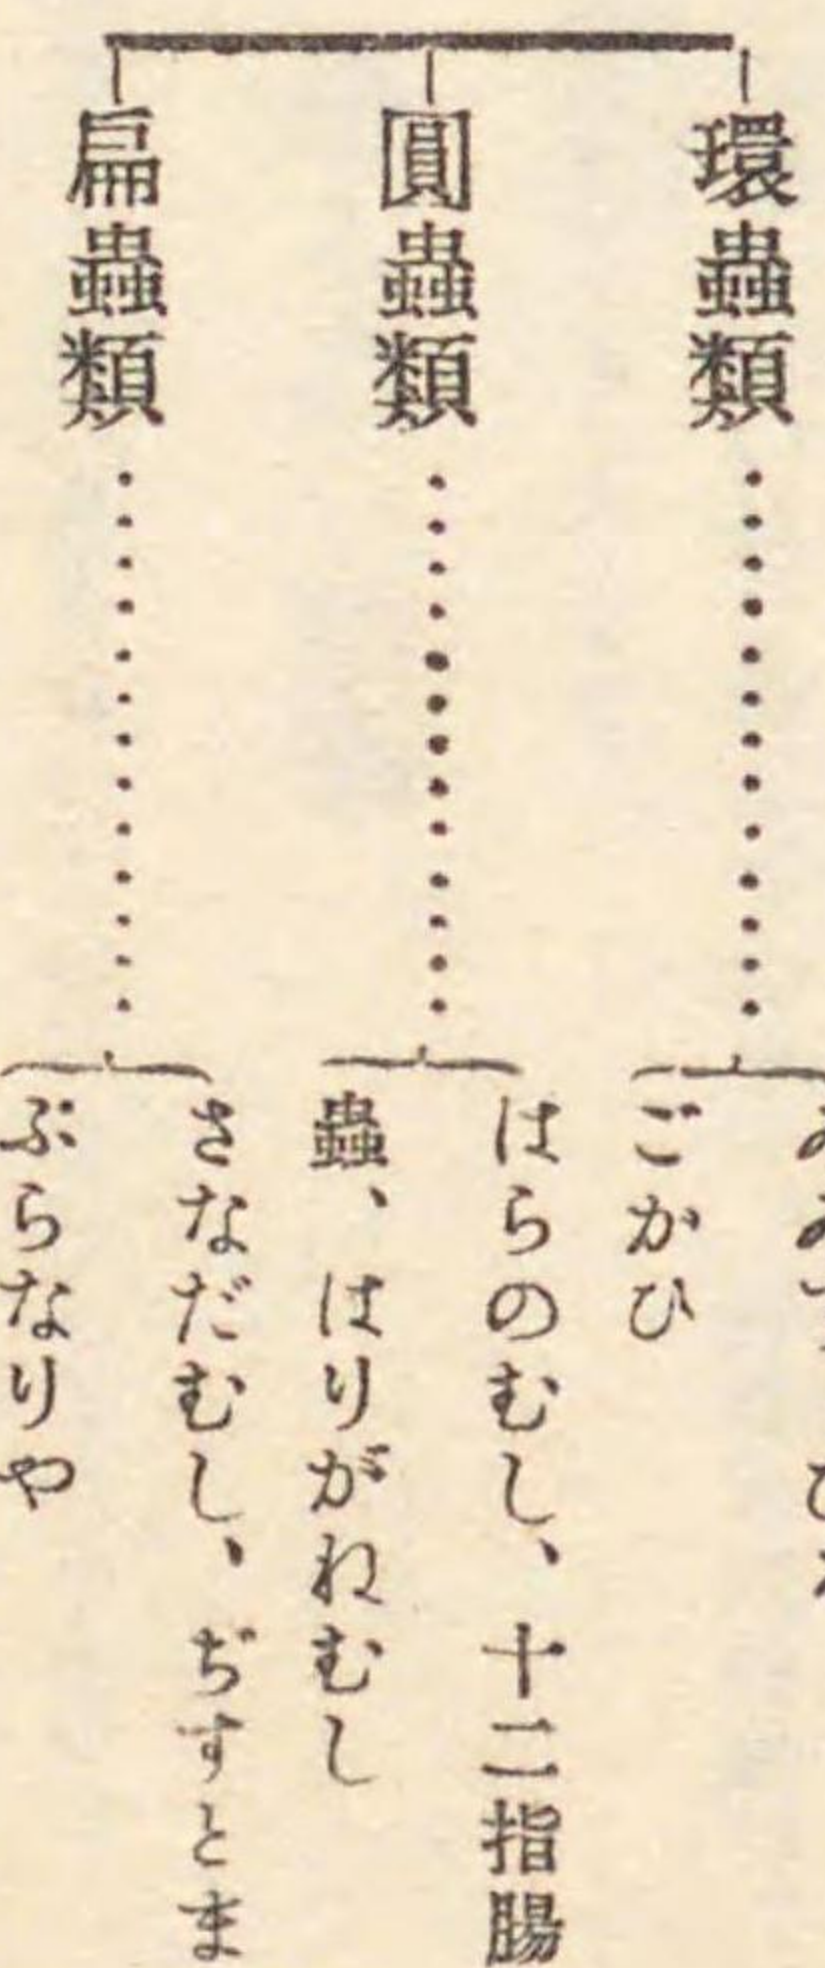 環蟲類
ごかひ
圓蟲類
はらのむし、十二指腸
蟲、はりがねむし
扁蟲類
さなだむし、ぢすとま
ぷらなりや